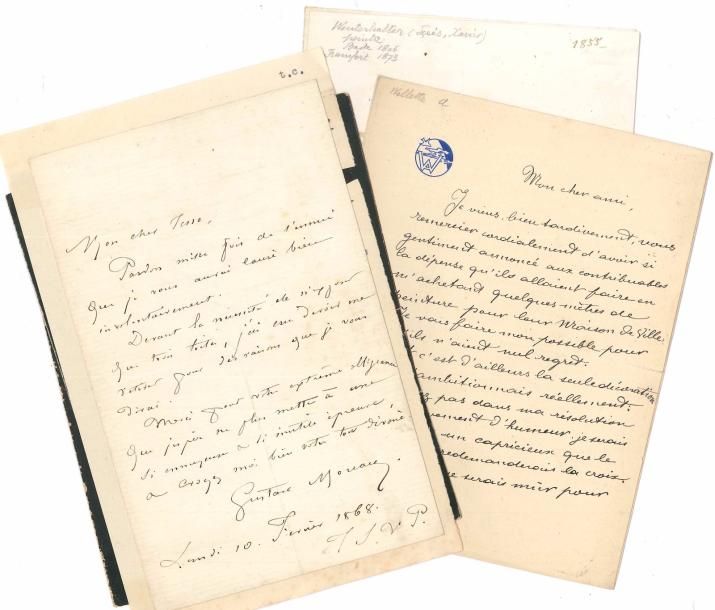 Winterhalter (Frs, Xavier)
peintre
Bade 1806
Francfort 1873
1855
t.c.
Mon cher
Pardon mille fois de l'ennui
que je vous aurai causé bien
involontairement.
Devant la nécessité de n'exposer
que trois toiles, j'ai cru devoir me
retirer pour des raisons que je vous
dirai.
Merci pour votre extrême obligeance
que j'espère ne plus mettre à une
si ennuyeuse & si inutile épreuve,
& croyez moi bien votre tout dévoué
Gustave Moreau.
Lundi 10. Février 1868.
T. S. V. P.
Willette a
W
Mon cher ami,
Je viens, bien tardivement, vous
remercier cordialement d'avoir si
gentiment annoncé aux contribuables
la dépense qu'ils allaient faire en
m'achetant quelques mètres de
peinture pour leur Maison de Ville.
Je vais faire mon possible pour
qu'ils n'aient nul regret.
c'est d'ailleurs la seule décoration
ambitionnais réellement.
pas dans ma résolution
mouvement d'humeur. je serais
un capricieux que le
redemanderais la croix.
je serais mûr pour